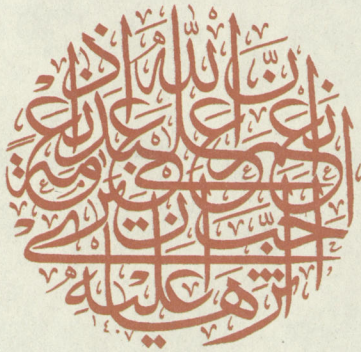 إنَّ الله إذا أنعم على عبد نعمةً أحبَّ أن يرى أثرها عليه
١٤٠٧